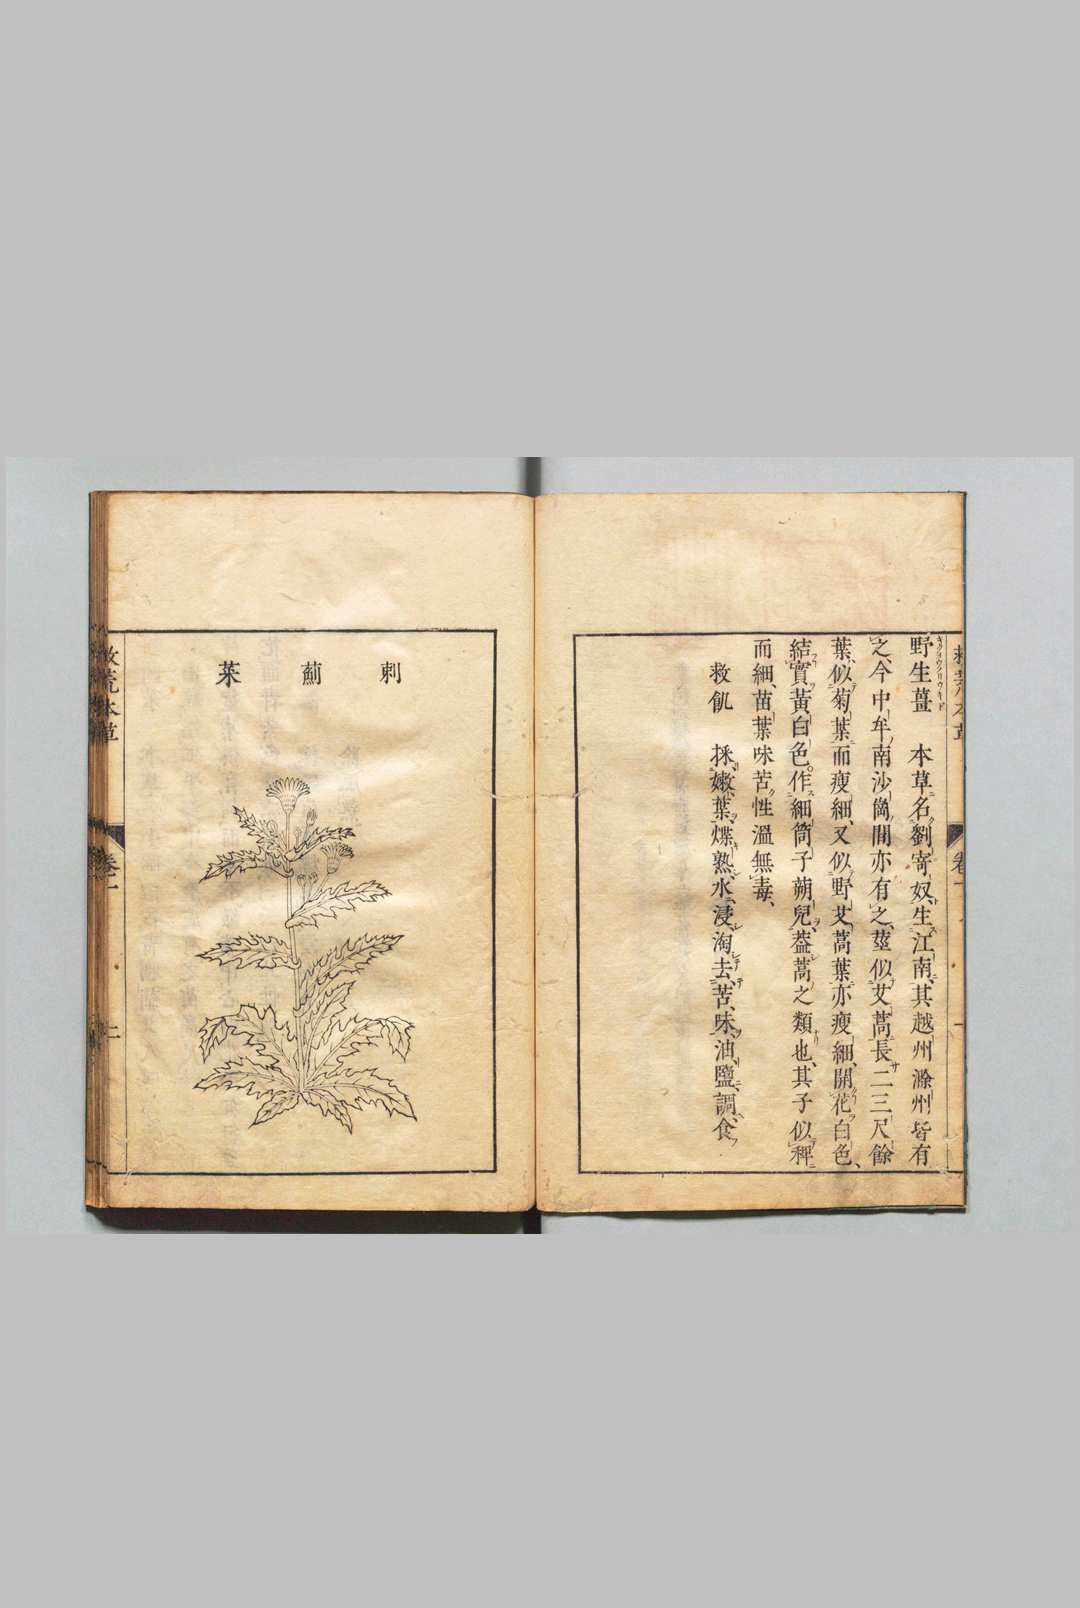 野生薑　本草名劉寄奴、生江南、其越州滁州皆有
之、今中牟南沙崗間亦有之、莖似艾蒿長二三尺餘
葉似菊葉而瘦細、又似野艾蒿葉亦瘦細、開花白色、
結實黃白色。作細筒子蒴兒、蓋蒿之類也、其子似稗
而細、苗葉味苦性溫無毒、
救飢　採嫩葉煠熟水浸淘去苦味油鹽調食
刺薊菜
救荒本草
卷一